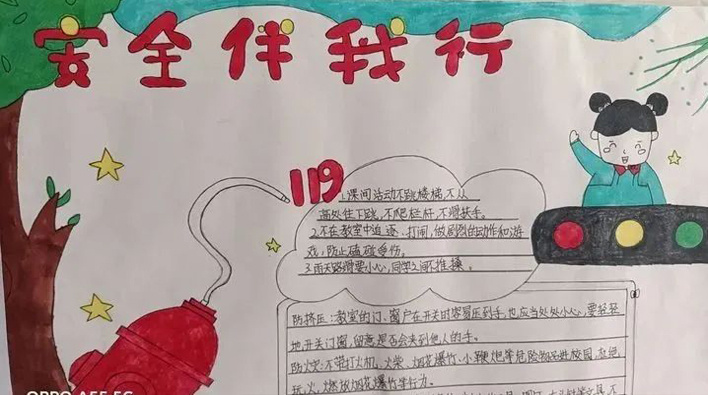 安全伴我行
119
1.课间活动不跳楼梯,不从
高处往下跳,不爬栏杆,不滑扶手。
2.不在教室中追逐、打闹,做剧烈的动作和游
戏,防止磕碰受伤。
3.雨天路滑要小心,同学之间不推搡。
防挤压:教室的门、窗户在开关时容易压到手,也应当处处小心,要轻轻
地开关门窗,留意是否会夹到他人的手。
防火灾:不带打火机、火柴、烟花爆竹、小鞭炮等危险物品进校园,杜绝
玩火、燃放烟花爆竹等行为。
OPPO A55 5G